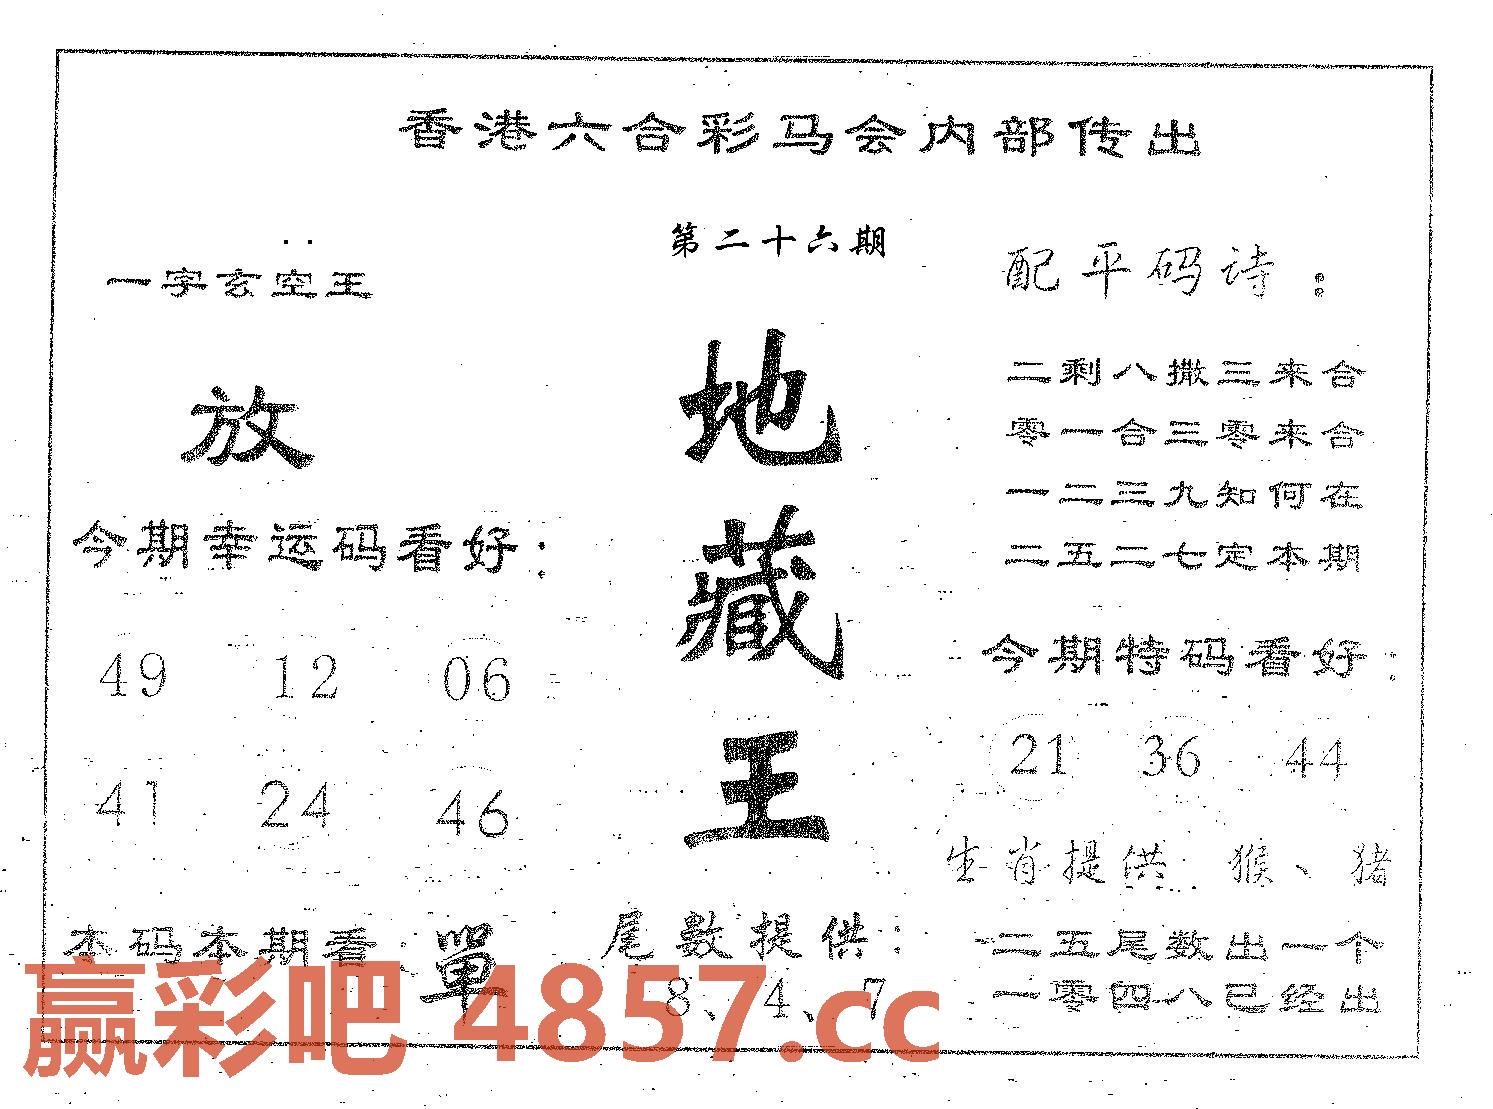 香港六合彩马会内部传出
第二十六期
一字玄空王
放
今期幸运码看好：
49 12 06
41 24 46
本码本期看：單
地藏王
尾數提供：
8、4、7
配平码诗：
二剩八撒三来合
零一合三零来合
一二三九知何在
二五二七定本期
今期特码看好：
21 36 44
生肖提供 猴、猪
二五尾数出一个
一零四八已经出
赢彩吧 4857.cc